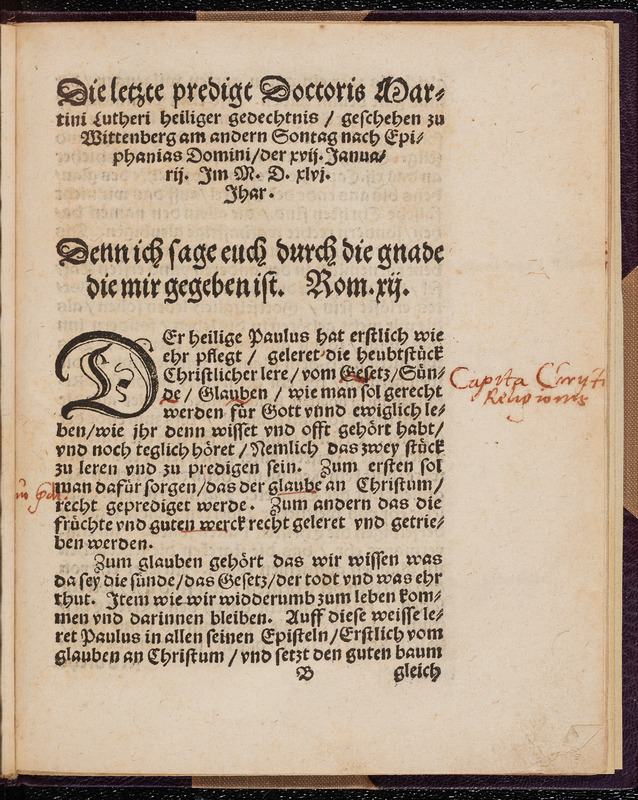 Die letzte predigt Doctoris Mar⸗
tini Lutheri heiliger gedechtnis / geschehen zu
Wittenberg am andern Sontag nach Epi⸗
phanias Domini/der xvij. Janua⸗
rij. Im M. D. xlvj.
Jhar.
Denn ich sage euch durch die gnade
die mir gegeben ist. Rom. xij.
DEr heilige Paulus hat erstlich wie
ehr pflegt / geleret die heubtstück
Christlicher lere / vom Gesetz / Sün⸗
de / Glauben / wie man sol gerecht
werden für Gott vnnd ewiglich le⸗
ben/wie jhr denn wisset vnd offt gehört habt/
vnd noch teglich höret / Nemlich das zwey stück
zu leren vnd zu predigen sein. Zum ersten sol
man dafür sorgen/das der glaube an Christum/
recht geprediget werde. Zum andern das die
früchte vnd guten werck recht geleret vnd getrie⸗
ben werden.
Zum glauben gehört das wir wissen was
da sey die sünde/das Gesetz/der todt vnd was ehr
thut. Item wie wir widderumb zum leben kom⸗
men vnd darinnen bleiben. Auff diese weisse le⸗
ret Paulus in allen seinen Episteln/Erstlich vom
glauben an Christum / vnd setzt den guten baum
B gleich
Capita